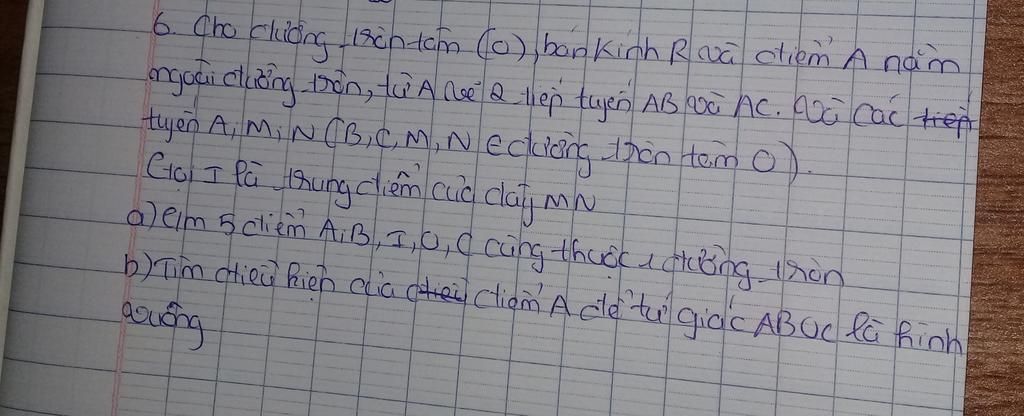 6. Cho đường tròn tâm (O), bán kính R và điểm A nằm
ngoài đường tròn, từ A vẽ 2 tiếp tuyến AB và AC. Và các tiếp
tuyến A, M, N (B, C, M, N ∈ đường tròn tâm O).
Gọi I là trung điểm của dây MN
a) C/m 5 điểm A, B, I, O, C cùng thuộc 1 đường tròn
b) Tìm điều kiện của điểm A để tứ giác ABOC là hình
vuông